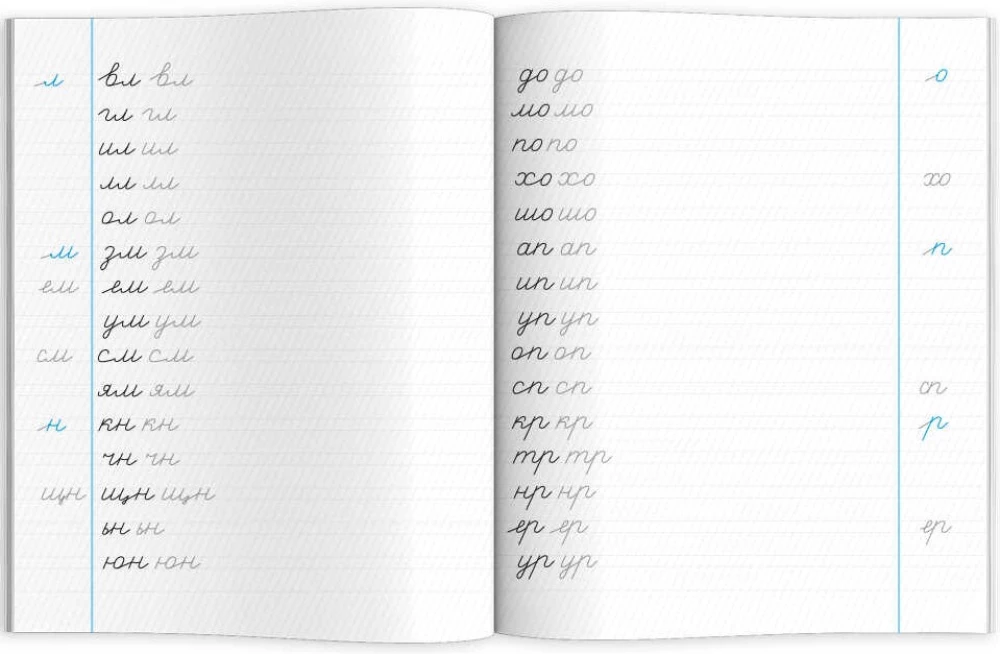 л вл вл
гл гл
ил ил
лл лл
ол ол
м зм зм
ем ем ем
ум ум
см см см
ям ям
н кн кн
чн чн
щн щн щн
ын ын
юн юн
до до о
мо мо
по по
хо хо хо
шо шо
ап ап п
ип ип
уп уп
оп оп
сп сп сп
кр кр р
тр тр
нр нр
ер ер ер
ур ур